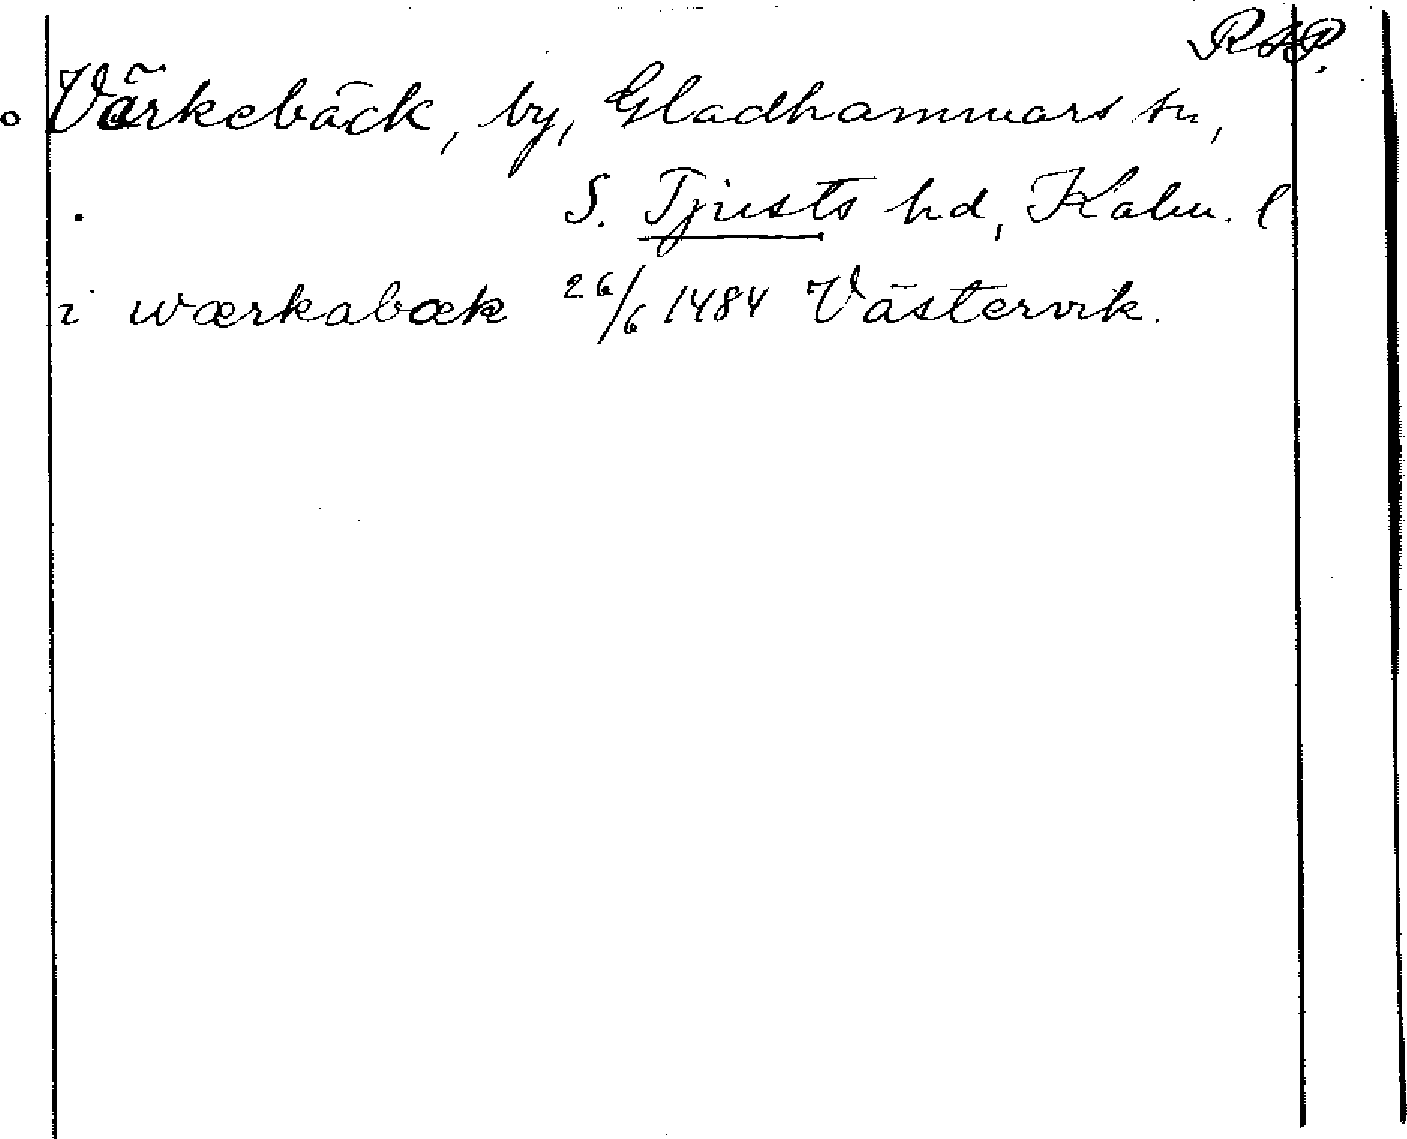 RAP.
Värkebäck, by, Gladhammars sn,
S. Tjusts hd, Kalm. l
i wærkabæk 26/6 1484 Västervik.